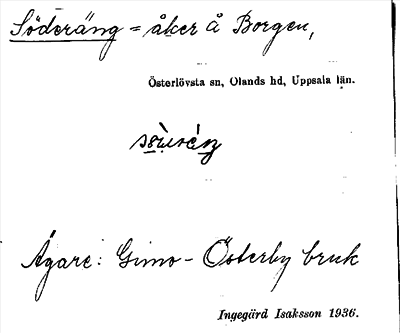 Söderäng = åker å Borgen,
Österlövsta sn, Olands hd, Uppsala län.
Ägare: Gimo-Österby bruk
Ingegärd Isaksson 1936.